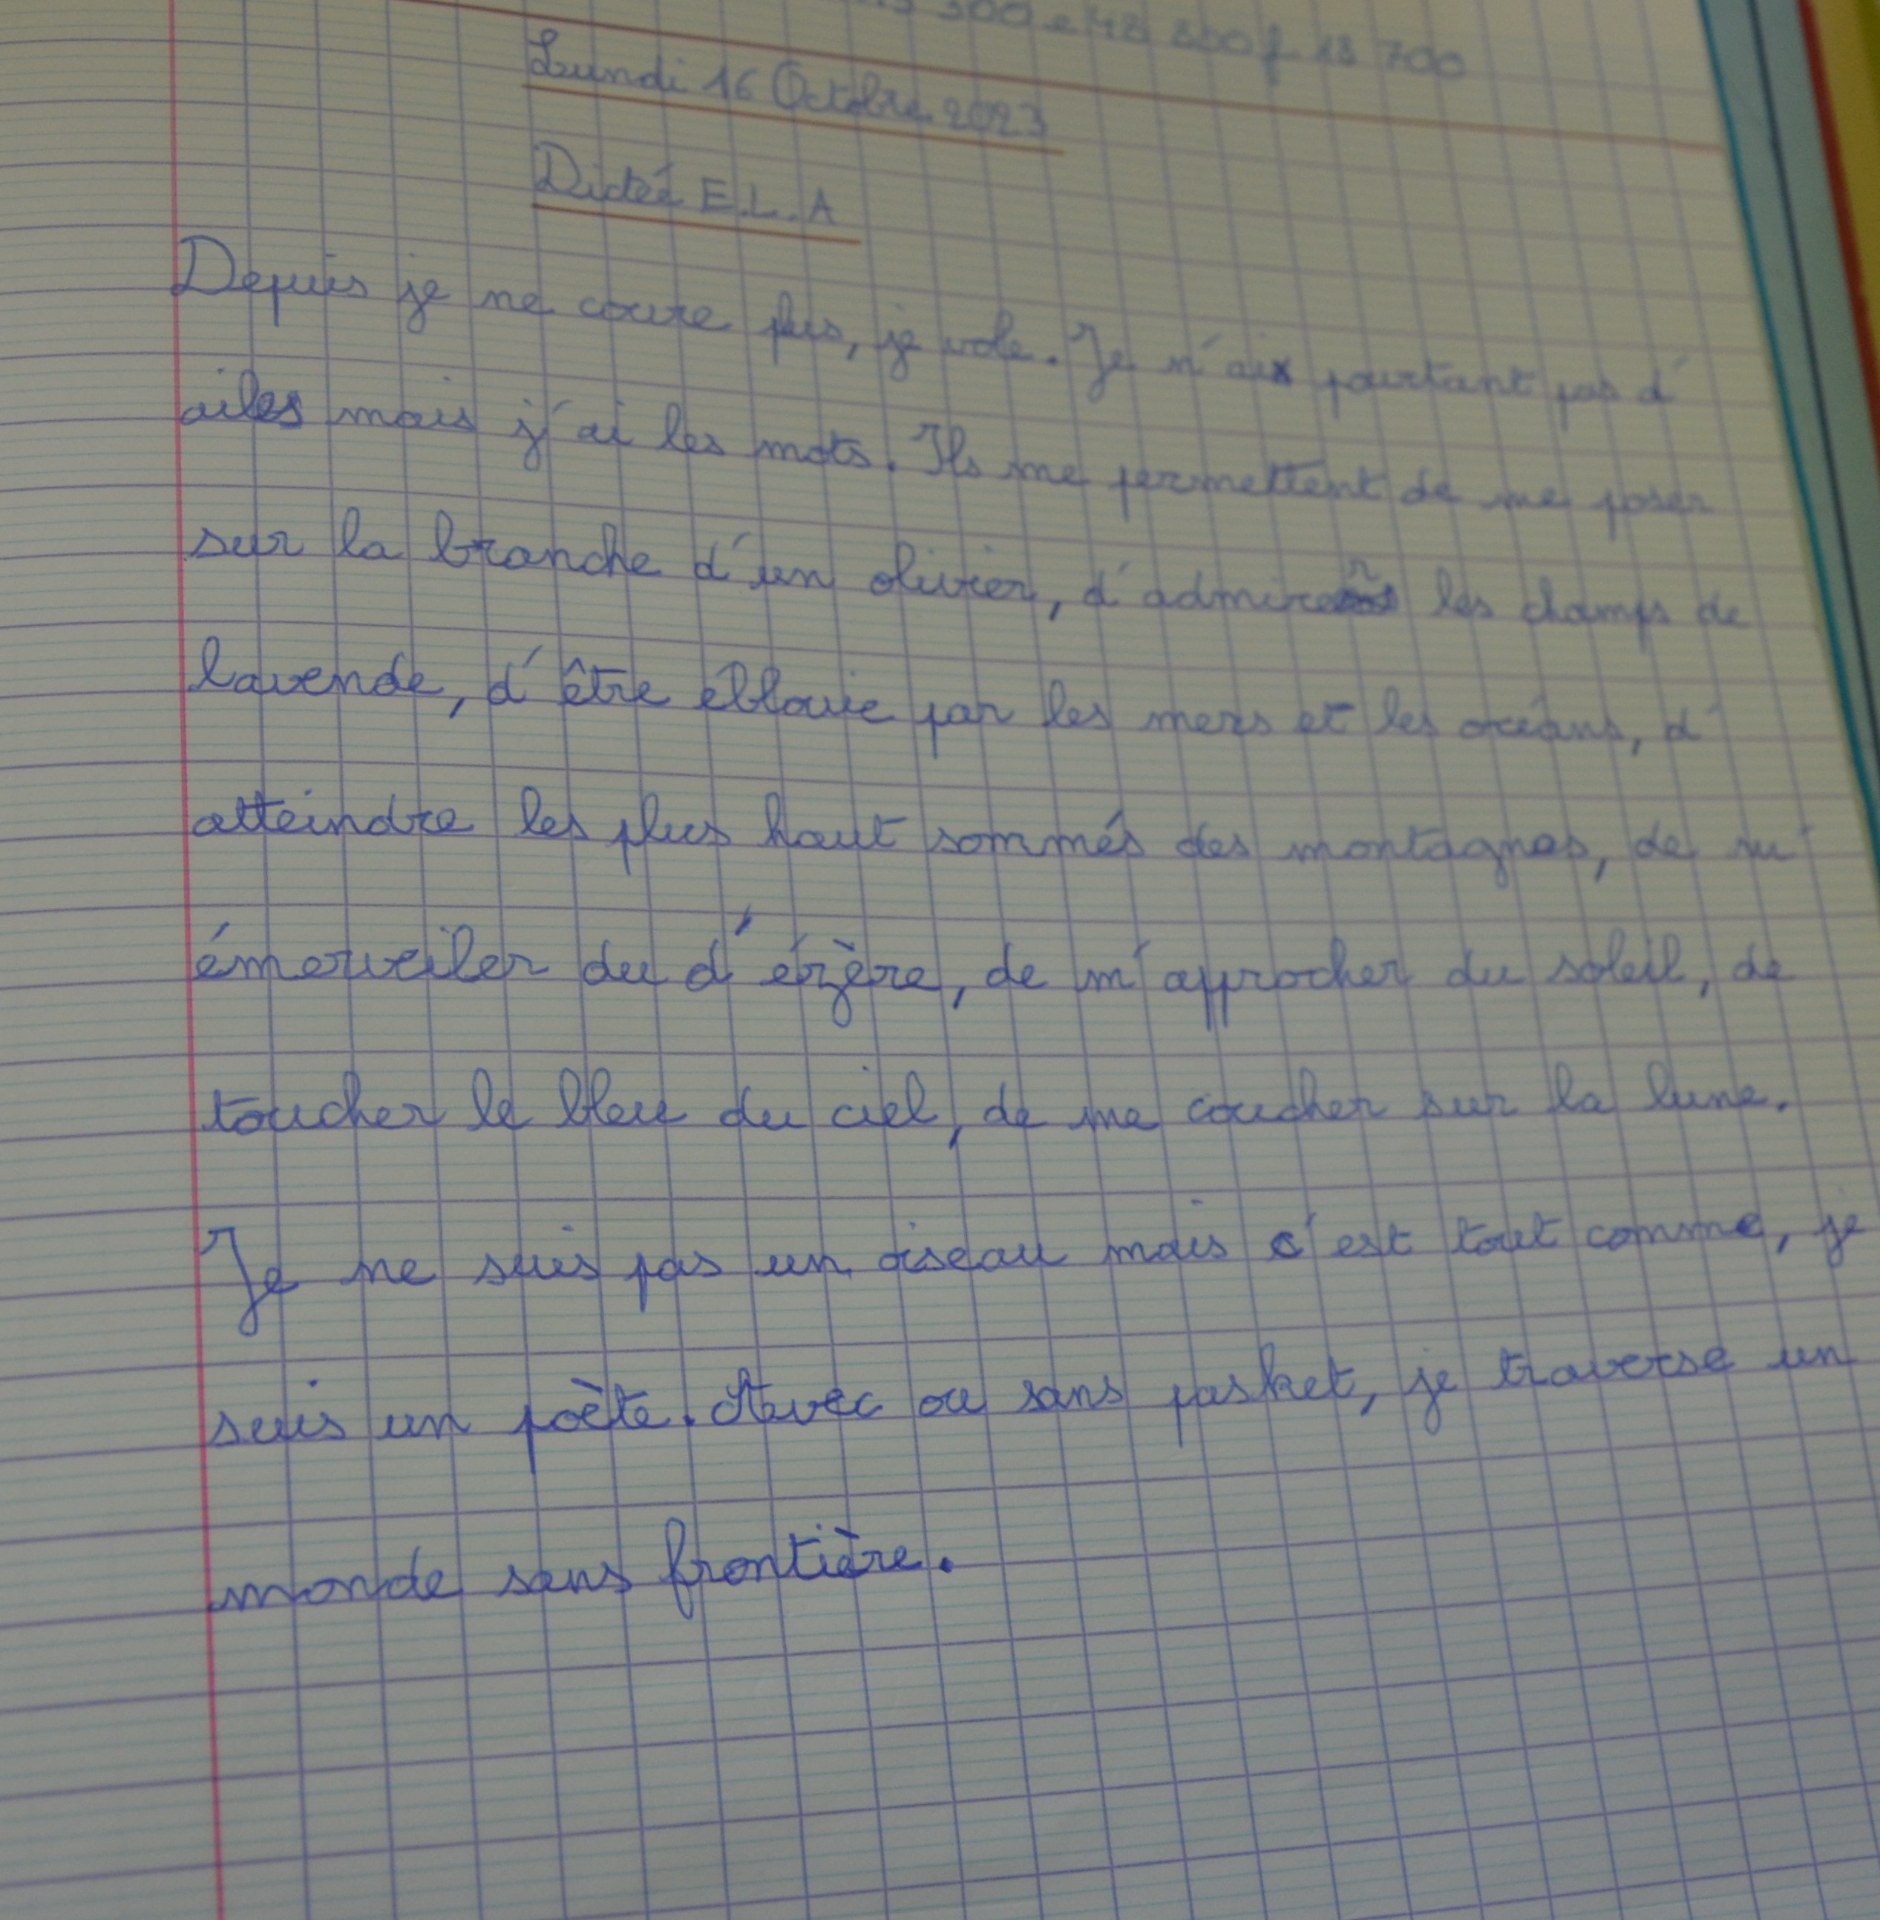 300 = 48 300 + 13 700
Lundi 16 Octobre 2023
Dicteé E.L.A
Depuis je ne coure plus, je vole. Je n'aix pourtant pas d'
ailes mais j'ai les mots. Ils me permettent de me poser
sur la branche d'un olivier, d'admirer les champs de
lavende, d'être éblouie par les mers et les océans, d'
atteindre les plus haut sommés des montagnes, de m'
émerveiler du d'ézère, de m'approcher du soleil, de
toucher le bleu du ciel, de me coucher sur la lune.
Je ne suis pas un oiseau mais c'est tout comme, je
suis un poète. Avec ou sans pasket, je traverse un
monde sans frontière.